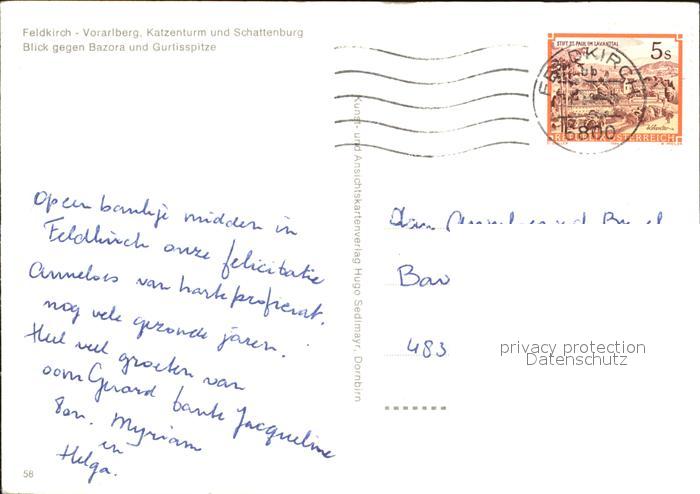 Feldkirch - Vorarlberg, Katzenturm und Schattenburg
Blick gegen Bazora und Gurtisspitze
STIFT ST. PAUL IM LAVANTTAL
5s
FELDKIRCH
6800
REPUBLIK ÖSTERREICH
Kunst- und Ansichtskartenverlag Hugo Sedlmayr, Dornbirn
Op een bankje midden in
Feldkirch onze felicitatie
Anneloes van harte proficiat.
nog vele gezonde jaren.
Heel veel groeten van
oom Gerard tante Jacqueline
Ton. Myriam
en
Helga.
483
privacy protection
Datenschutz
58